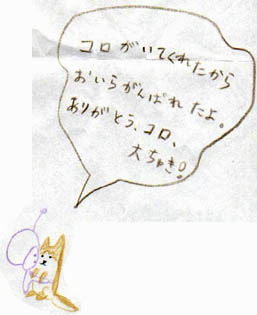 コロがいてくれたから
おいらがんばれたよ。
ありがとう、コロ、
大ちゅき!